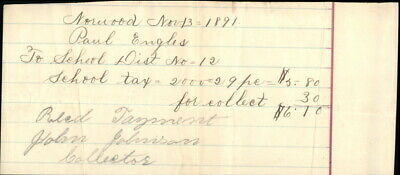 Norwood Nov 13 = 1891
Paul Engles
To School Dist No = 12
School tax = 2000 = 29 pc = $5.80
for collect 30
$6.10
Recd Payment
John Johnson
Collector